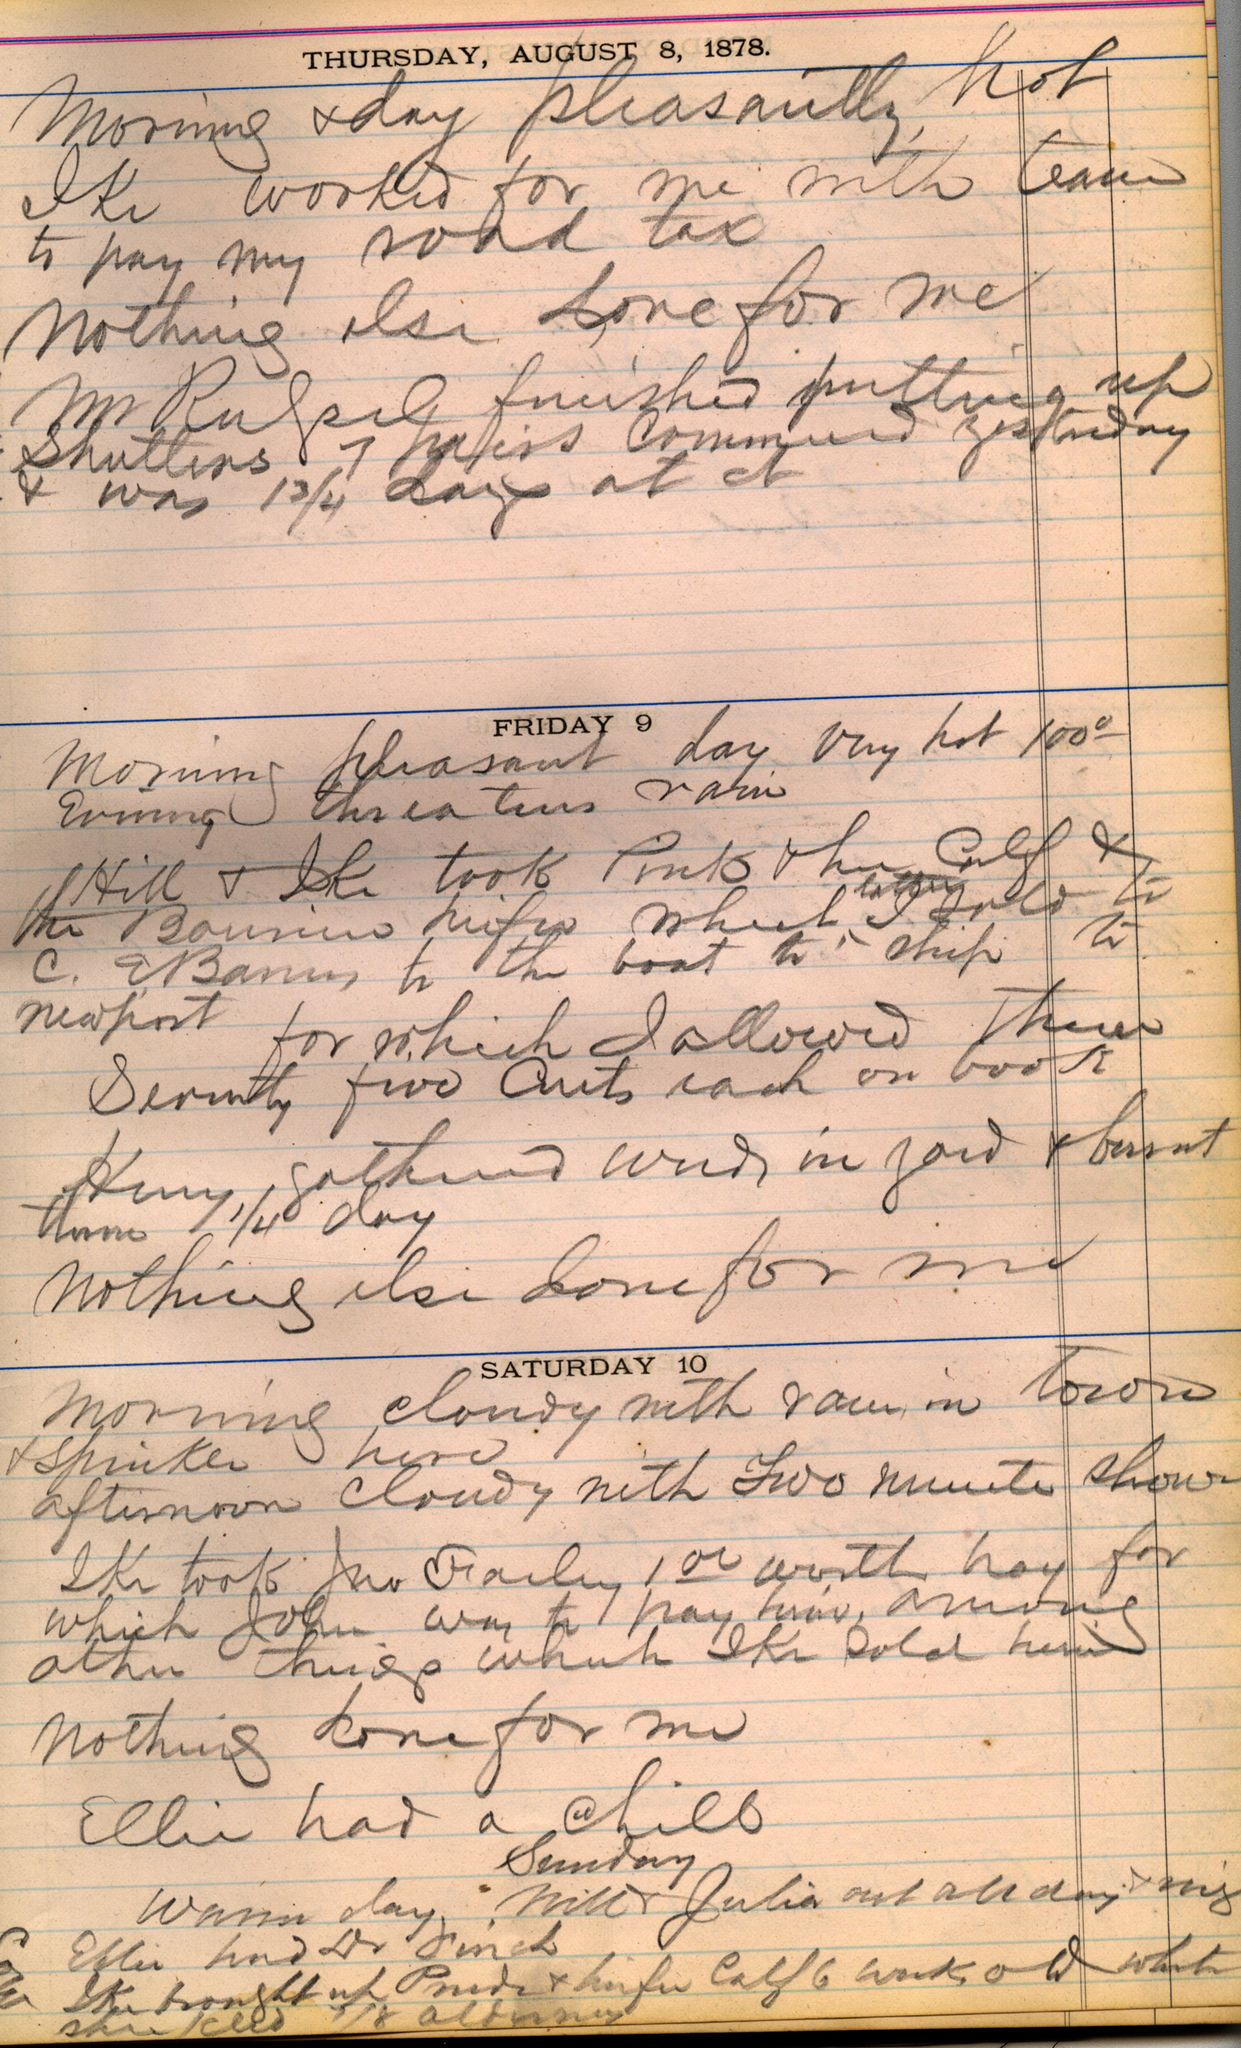 THURSDAY, AUGUST 8, 1878.
Morning & day pleasantly hot
Ike worked for me with team
to pay my road tax
Nothing else done for me
Mr finished putting up
Shutters 7 pairs Commenced yesterday
& was 1 3/4 days at it
FRIDAY 9
Morning pleasant day very hot 100°
Evening threatens rain
Hill & Ike took Pink & her Calf &
latter
the heifer which I sold to
C. E Barnes to the boat to ship to
Newport
for which I allowed them
Seventy five Cents each on book
Henry gathered weeds in yard & burnt
them 1/4 day
Nothing else done for me
SATURDAY 10
Morning cloudy with rain in town
& sprinkle here
afternoon Cloudy with Two minute show
Ike took Jno 1 00 worth hay for
which John was to pay him, among
other things which Ike sold him
Nothing done for me
Ellie had a chill
Sunday
Warm day. Will & Julia out all day &
Ellie had Dr Finch
Ike brought up & heifer Calf 6 weeks old which
she 7/8 alderney